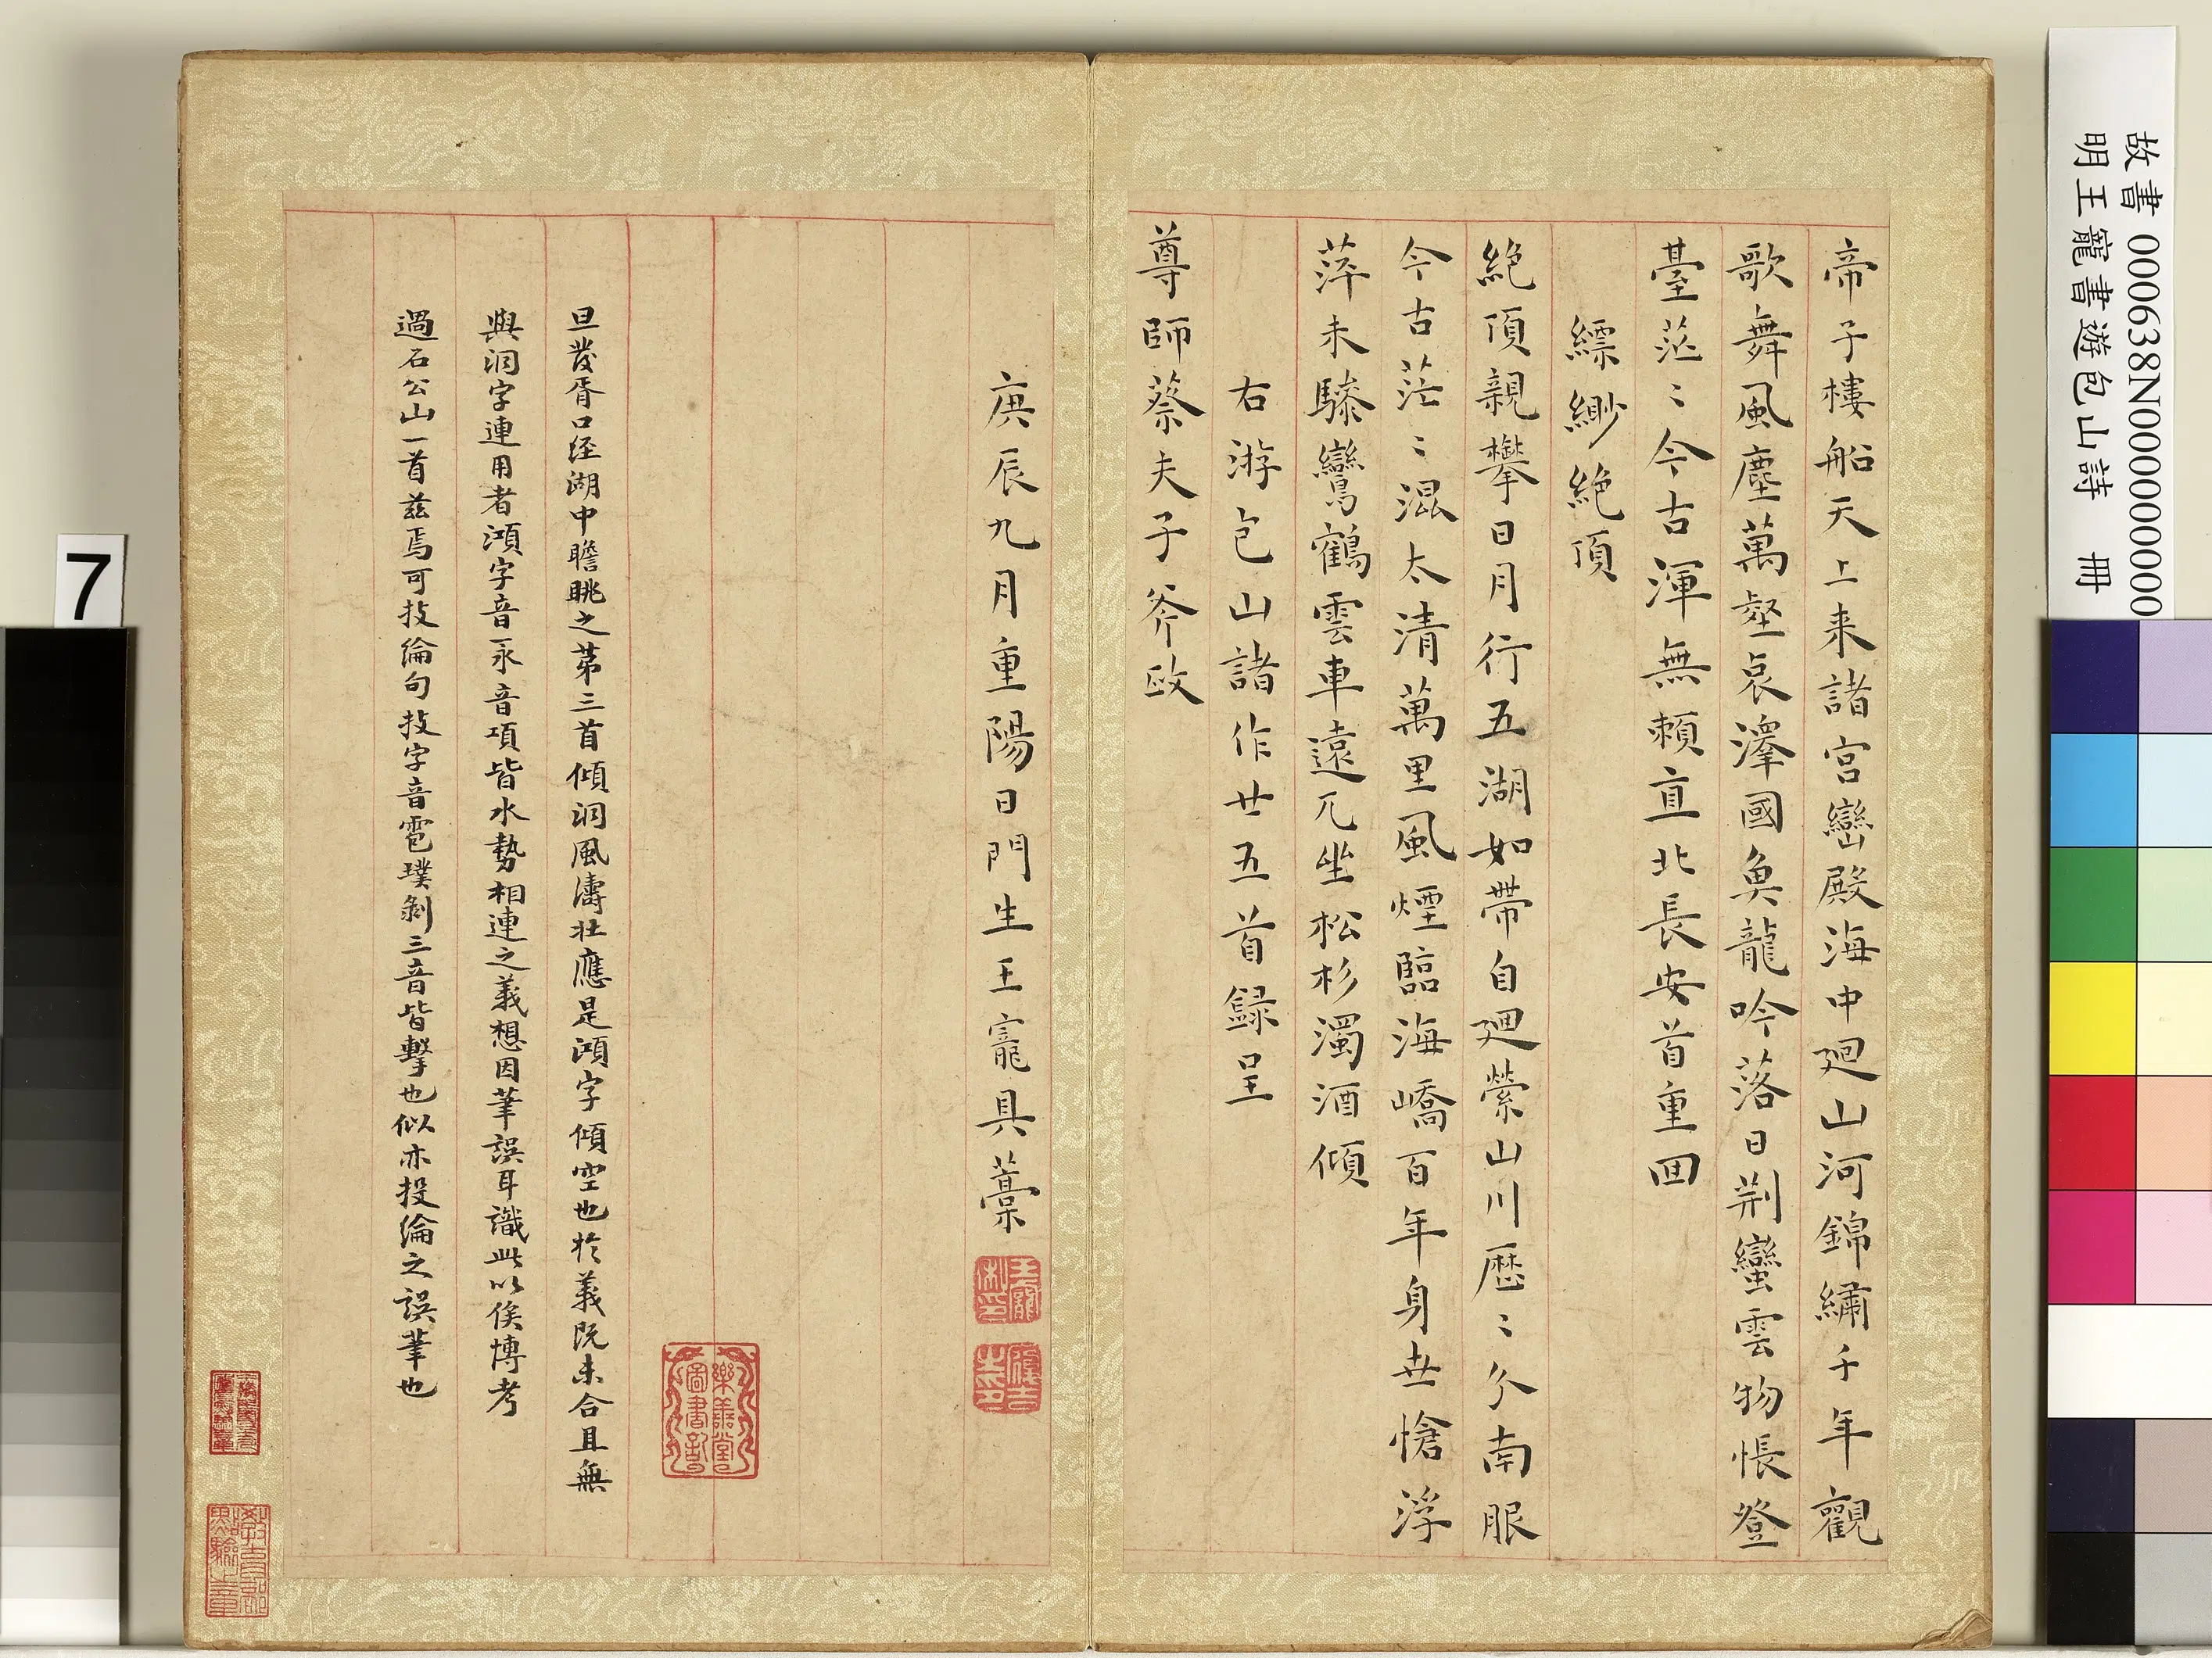 故書 000638N000000000
明王寵書遊包山詩　冊
帝子樓船天上来諸宮巒殿海中廻山河錦繡千年觀
歌舞風塵萬壑哀澤國魚龍吟落日荆蠻雲物悵登
臺茫〻今古渾無賴直北長安首重回
縹緲絶頂
絶頂親攀日月行五湖如帶自廻縈山川歷〻分南服
今古茫〻混太清萬里風煙臨海嶠百年身世愴浮
萍未驂鸞鶴雲車遠兀坐松杉濁酒傾
右游包山諸作廿五首録呈
尊師蔡夫子斧政
庚辰九月重陽日門生王寵具藁
樂善堂圖書記
旦發胥口経湖中瞻眺之苐三首傾洞風濤壯應是澒字傾空也扵義既未合且無
與洞字連用者澒字音永音項皆水勢相連之義想因筆誤耳識此以俟博考
過石公山一首兹焉可技綸句技字音雹璞剝三音皆擊也似亦投綸之誤筆也
7